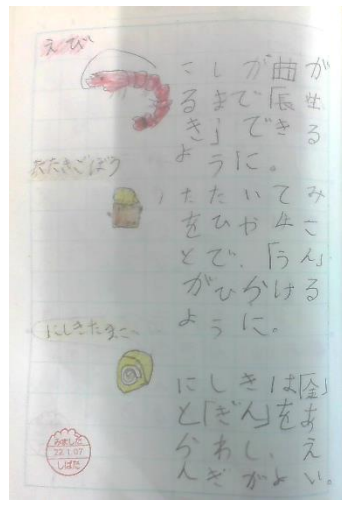 えび
こしが曲が
るまで「長生
き」できる
ように。
たたきごぼう
たたいてみ
をひらくこ
とで、「うん」
がひらける
ように。
にしきたまご
にしきは「金」
と「ぎん」をあ
らわし、え
んぎがよい。
みました
22.1.07
しばた